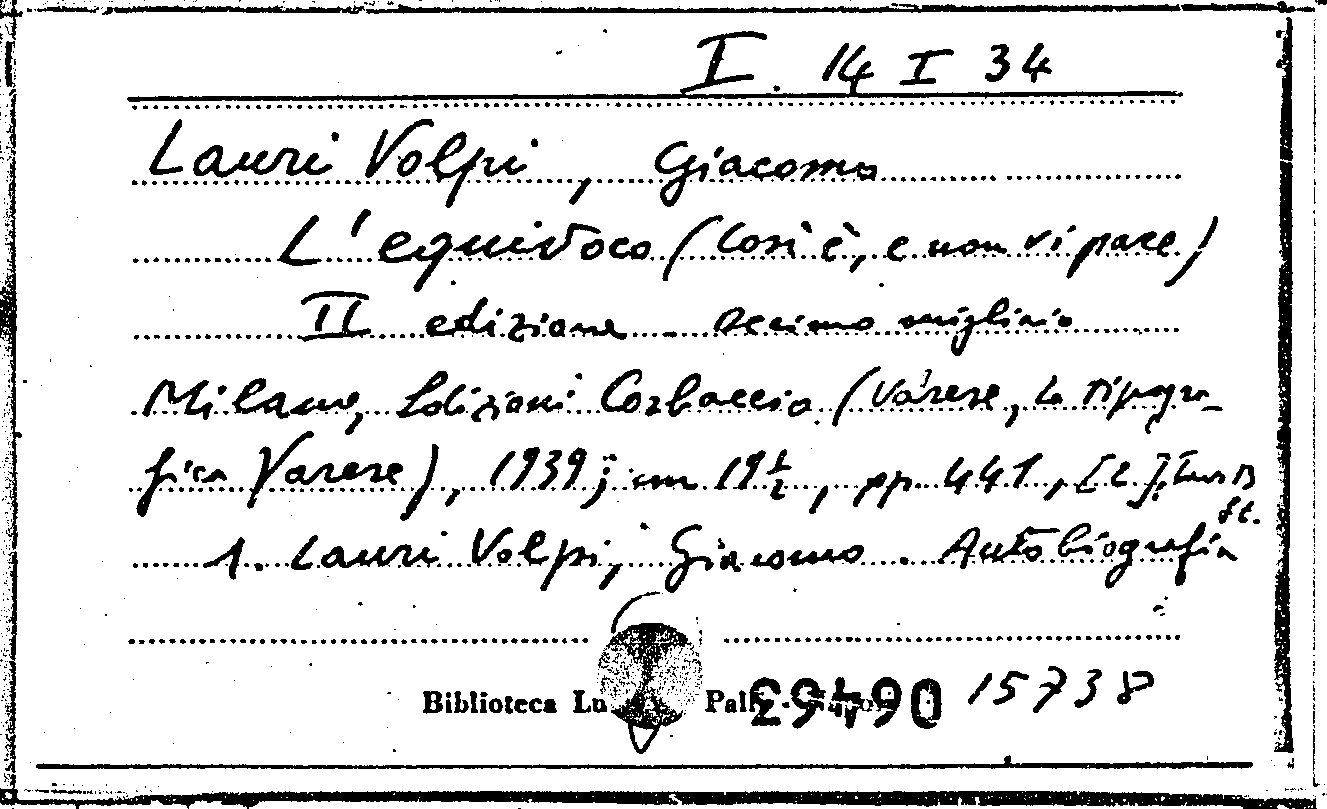 I. 14 I 34
Lauri Volpi, Giacomo
L'equivoco (Così è, e non vi pare)
II edizione - decimo migliaio
Milano, Edizioni Corbaccio (Varese, La Tipogra-
fica Varese), 1939; cm 19½, pp. 441, [2];
1. Lauri Volpi, Giacomo. Autobiografia
Biblioteca
15738